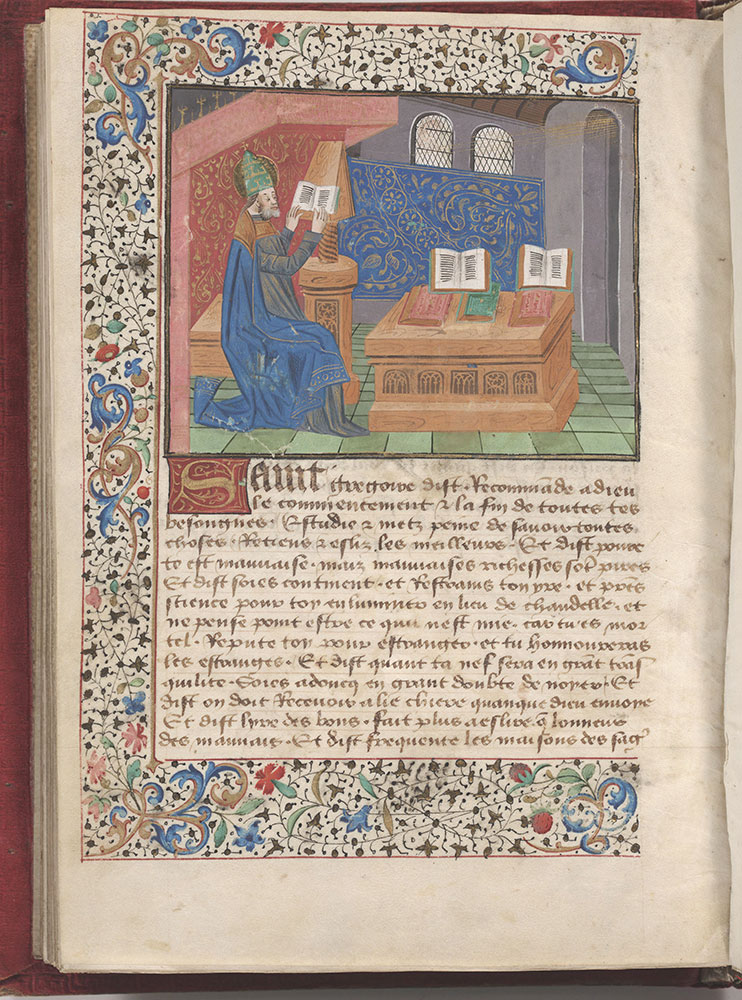 Saint gregoire dist. Recommade a dieu
le commencement & la fin de toutes tes
besongnes. Estudie & metz peine de savoir toutes
choses. Retiens & esliz les meilleurs. Et dist povre
te est mauvaise. maiz mauvaises richesses sot pires
Et dist soies continent. et Restrains ton yre. et prens
science pour toy enluminer en lieu de chandelle. et
ne pense point estre ce qui nest mie. car tu es mor
tel. Repute toy pour estranger. et tu honnoureras
les estranges. Et dist quant ta nef sera en grat tras
quilite. Soies adoncq en grant doubte de noyer. Et
dist on doit Recevoir a lie chiere quanque dieu envoye
Et dist lyre des bons. fait plus a eslire q lonneur
des mauvais. Et dist frequente les maisons des sag